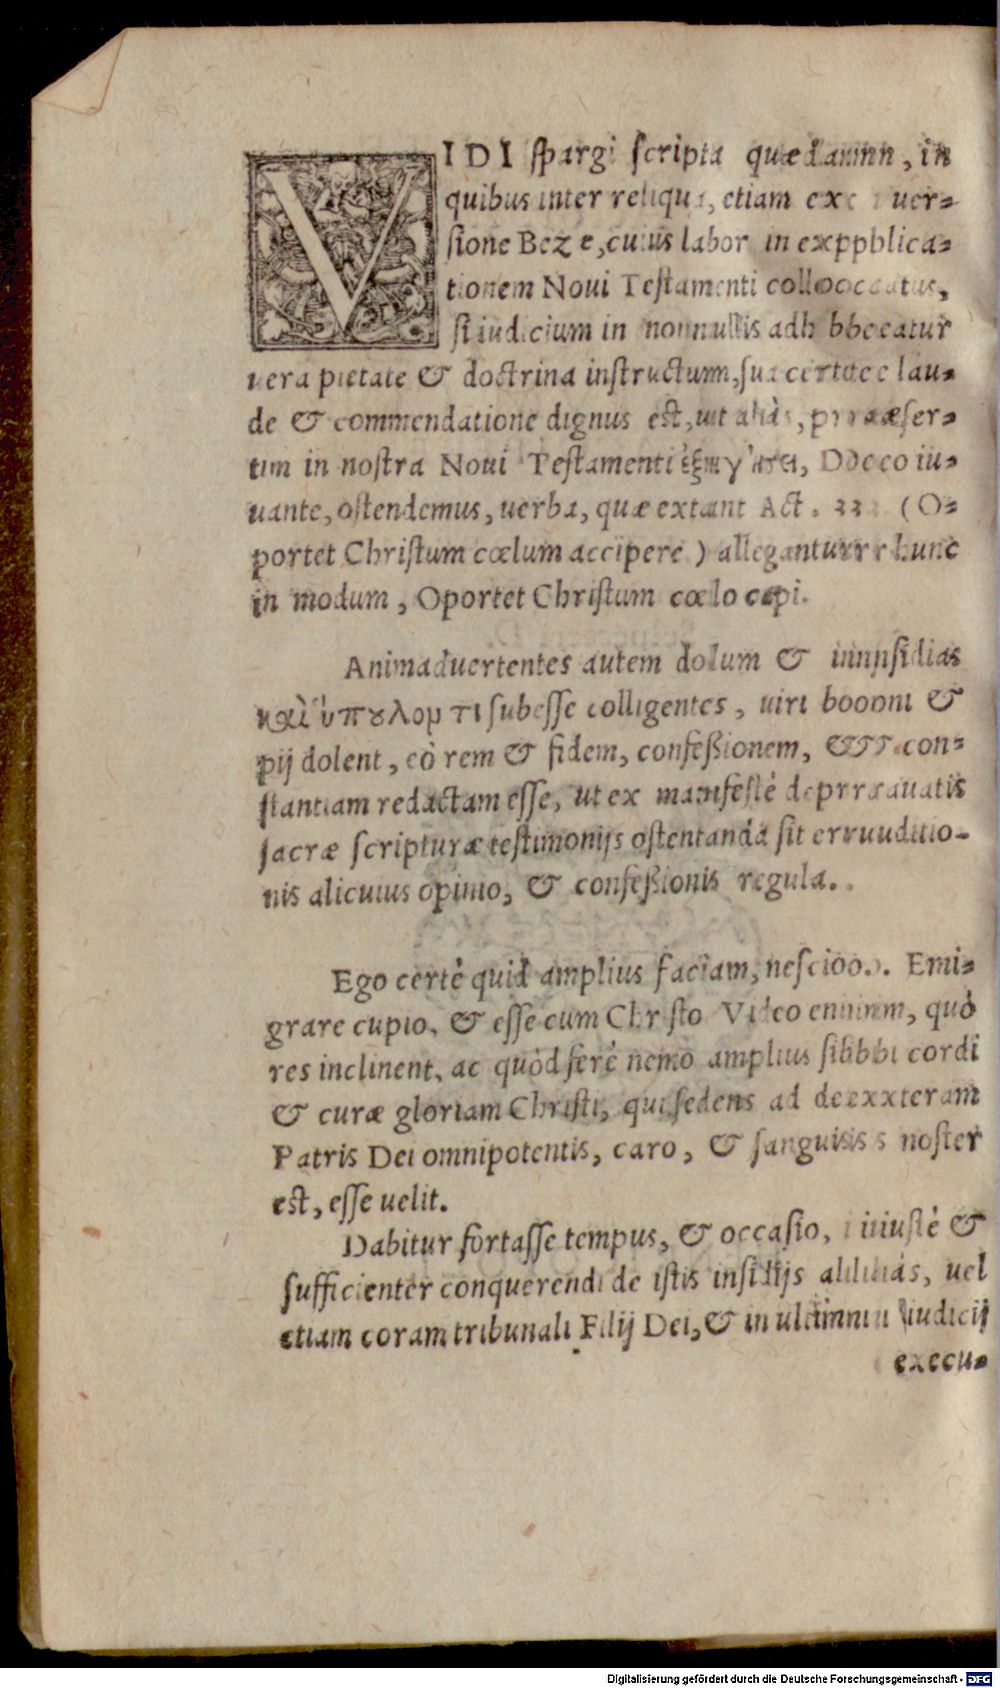 VIDI spargi scripta quædam, in
quibus inter reliqua, etiam ex uer-
sione Bezæ, cuius labor in explica-
tionem Noui Testamenti collocatus,
si iudicium in nonnullis adhibeatur
uera pietate & doctrina instructum, sua certe lau-
de & commendatione dignus est, ut aliàs, præser-
tim in nostra Noui Testamenti Deo iu-
uante, ostendemus, uerba, quæ extant Act. 3. (O-
portet Christum cœlum accipere) allegantur hunc
in modum, Oportet Christum cœlo capi.
Animaduertentes autem dolum & insidias
καὶ ὕπουλόν τι subesse colligentes, uiri boni &
pij dolent, eò rem & fidem, confeßionem, & con-
stantiam redactam esse, ut ex manifestè deprauatis
sacræ scripturæ testimonijs ostentanda sit eruditio-
nis alicuius opinio, & confeßionis regula.
Ego certè quid amplius faciam, nescio. Emi-
grare cupio, & esse cum Christo Video enim, quò
res inclinent, ac quòd ferè nemo amplius sibi cordi
& curæ gloriam Christi, qui sedens ad dexteram
Patris Dei omnipotentis, caro, & sanguis noster
est, esse uelit.
Dabitur fortasse tempus, & occasio, iustè &
sufficienter conquerendi de istis insidijs aliàs, uel
etiam coram tribunali Filij Dei, & in ultimi iudicij
execu-
Digitalisierung gefördert durch die Deutsche Forschungsgemeinschaft - DFG